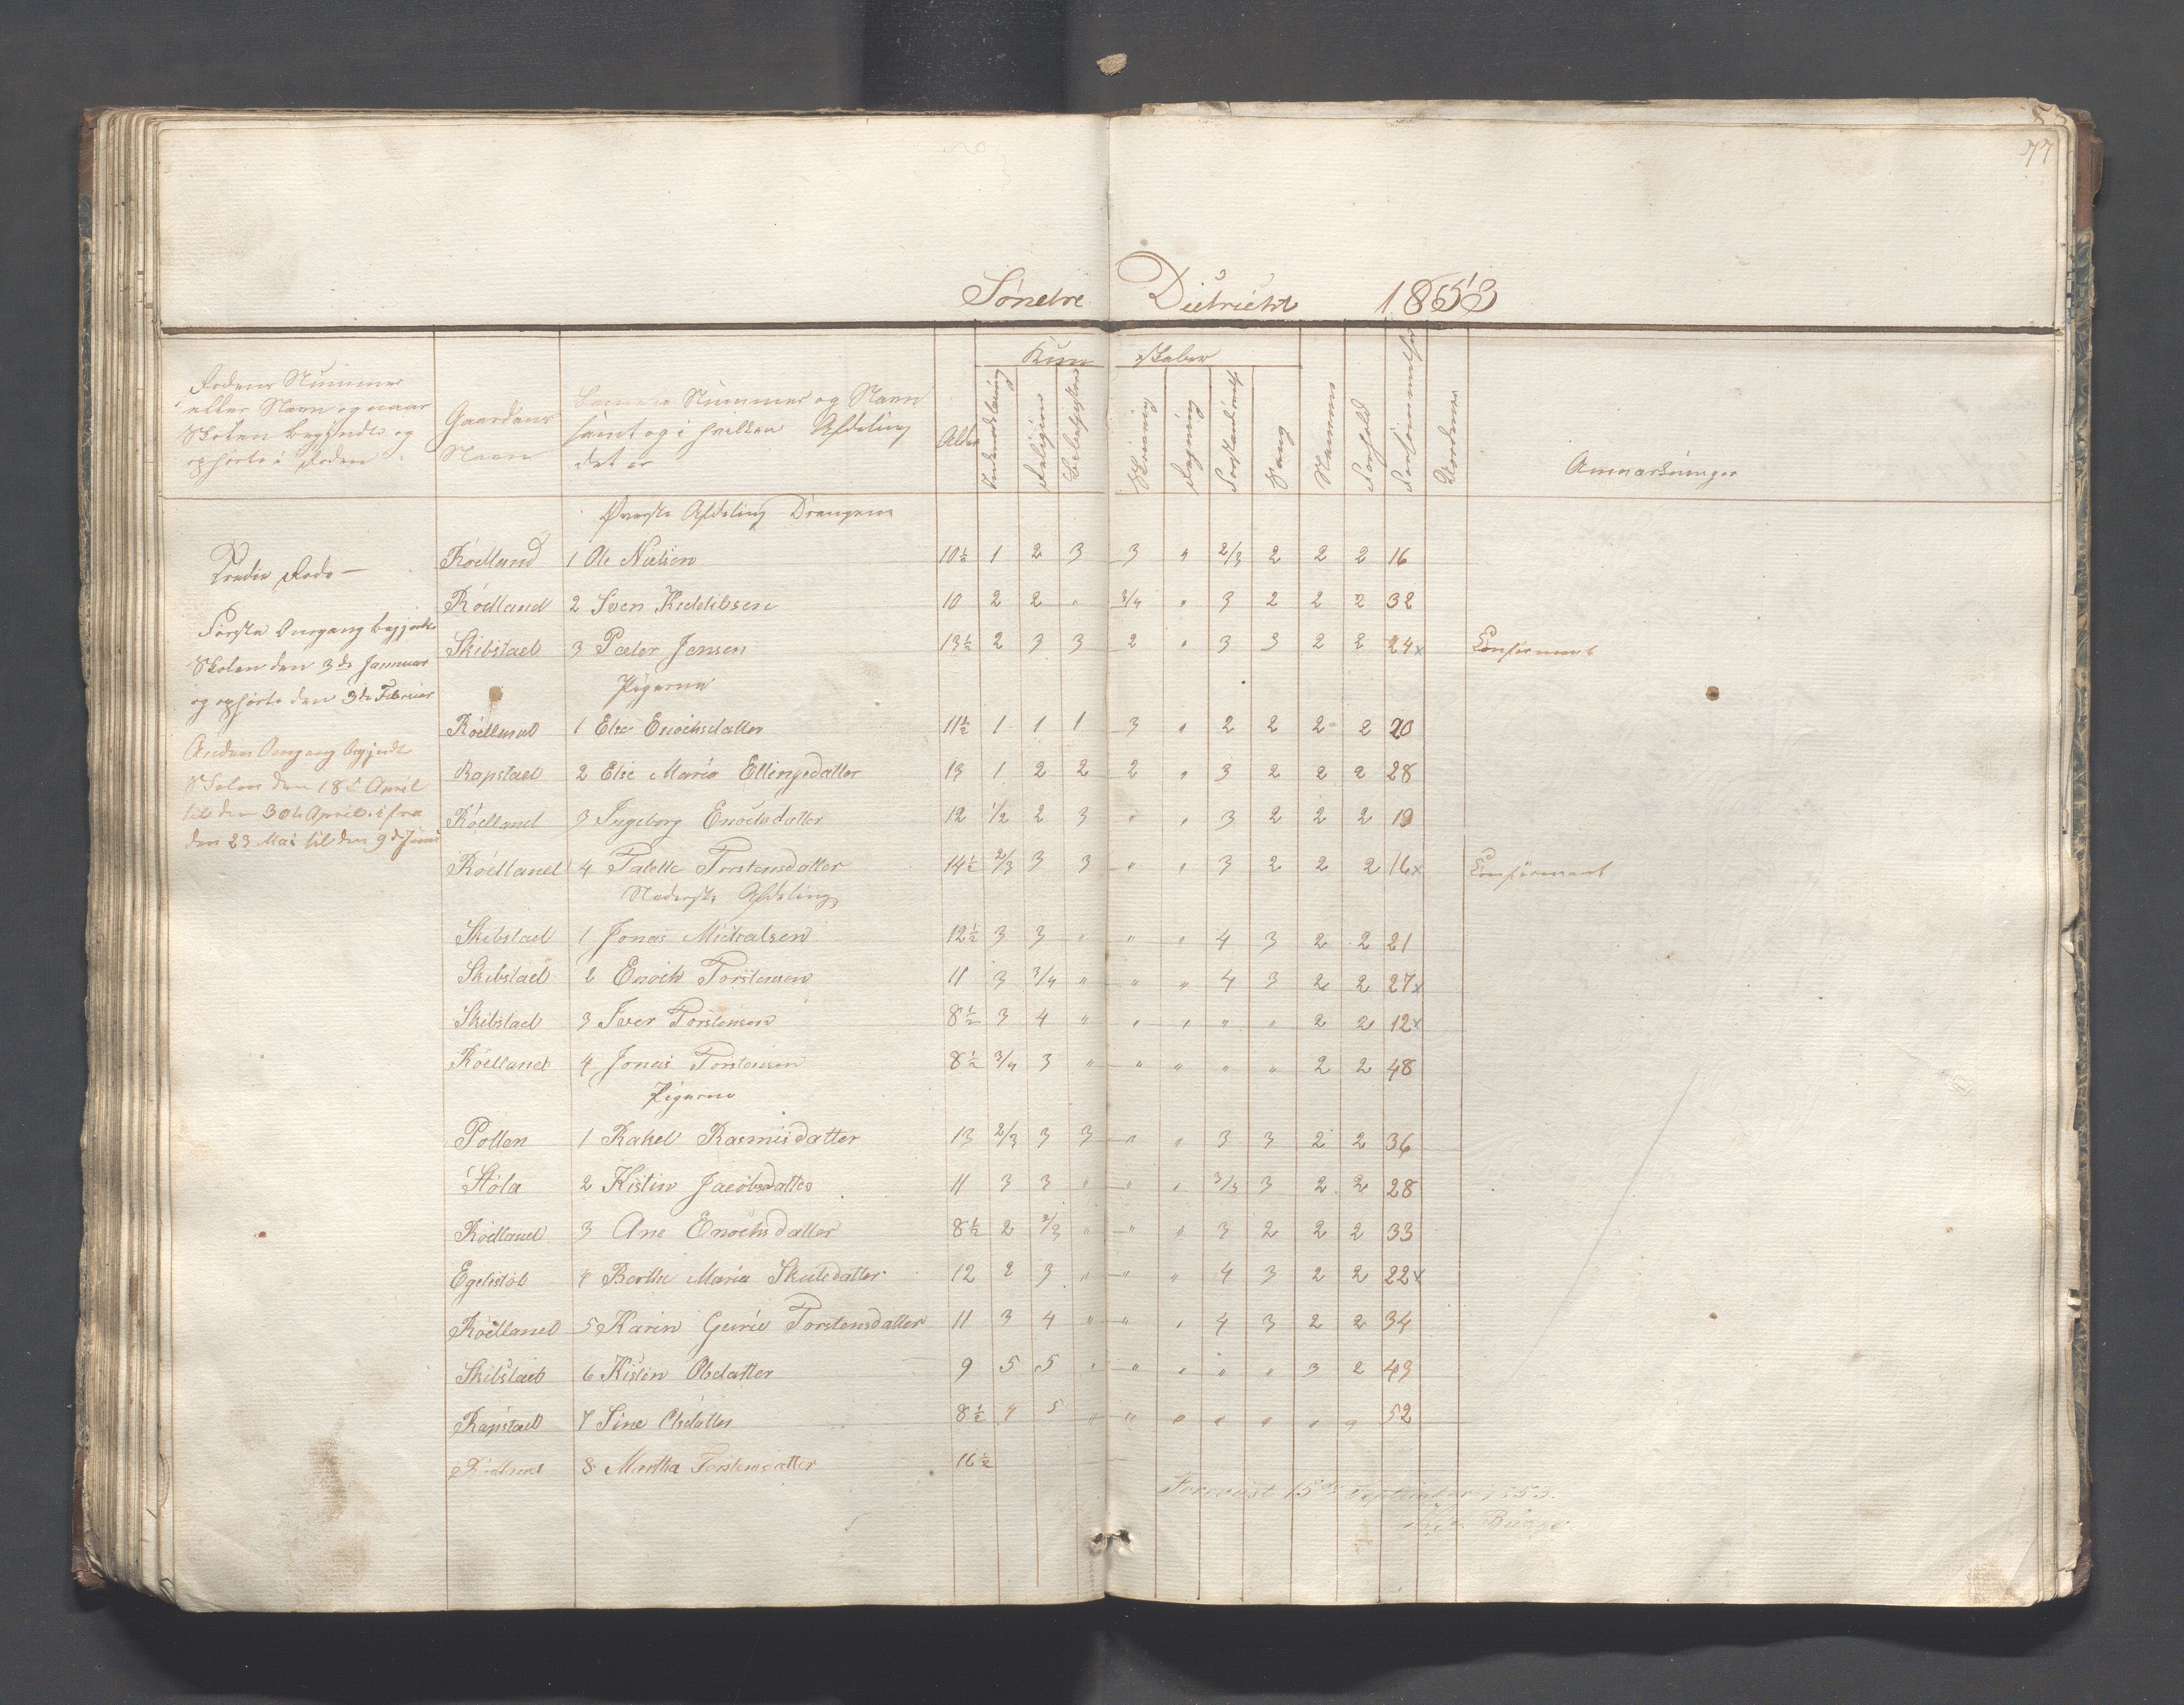 77
Söndre District 1853
Rodens Nummer
eller Navn og naar
Skolen begyndte og
ophörte i Roden
Gaardens
Navn
Nummer og Navn
samt og i hvilken Afdeling
det er
Alder
Kun skaber
Indenadslæsning
Religion
Bibelhistorie
Skrivning
Regning
Forstandsövelse
Sang
Nemme
Forhold
Forsömmelser
Anmærkninger
Överste Afdeling Drengene
Tredie Rode
Rödland 1 Ole Nielsen 10½ 1 2 3 3 " 2/3 2 2 2 16
Rödland 2 Sven Keddilsen 10 2 2 " 3/4 " 3 2 2 2 32
Förste Omgang begyndte
Skolen den 3de Januar
og ophörte den 3de Februar
Skibstad 3 Peder Jensen 13½ 2 3 3 2 " 3 3 2 2 24x Confirmant
Pigerne
Rödland 1 Else Enochsdatter 11½ 1 1 1 3 " 2 2 2 2 20
Anden Omgang begyndte
Skolen den 18de April
til den 30te April. i fra
den 23 Mai til den 9de Juni
Rapstad 2 Else Maria Ellingsdatter 13 1 2 2 2 " 3 2 2 2 28
Rödland 3 Ingeborg Enochsdatter 12 1/2 2 3 " " 3 2 2 2 19
Rödland 4 Talette Torstensdatter 14½ 2/3 3 3 " " 3 2 2 2 16x Confirmant
Nederste Afdeling
Skibstad 1 Jonas Mickalsen 12½ 3 3 " " " 4 3 2 2 21
Skibstad 2 Enoch Torstensen 11 3 3/4 " " " 4 3 2 2 27x
Skibstad 3 Iver Torstensen 8½ 3 4 " " " " " 2 2 12x
Rödland 4 Jonas Torstensen 8½ 3/4 3 " " " " " 2 2 48
Pigerne
Pollen 1 Rakel Rasmisdatter 13 2/3 3 3 " " 3 3 2 2 36
Stöla 2 Kistin Jacobsdatter 11 3 3 " " " 3/3 3 2 2 28
Rödland 3 Ane Enochsdatter 8½ 2 2/3 " " " 3 2 2 2 33
Egelistöl 4 Berthe Maria Skulsdatter 12 2 3 " " " 4 3 2 2 22x
Rödland 5 Karin Gurie Torstensdatter 11 3 4 " " " 4 3 2 2 34
Skibstad 6 Kistin Olsdatter 9 5 5 " " " " " 3 2 43
Rapstad 7 Sine Olsdatter 8½ 4 5 " " " " " " " 52
Rödland 8 Martha Torstensdatter 16½
Forevist 15de September 1853.